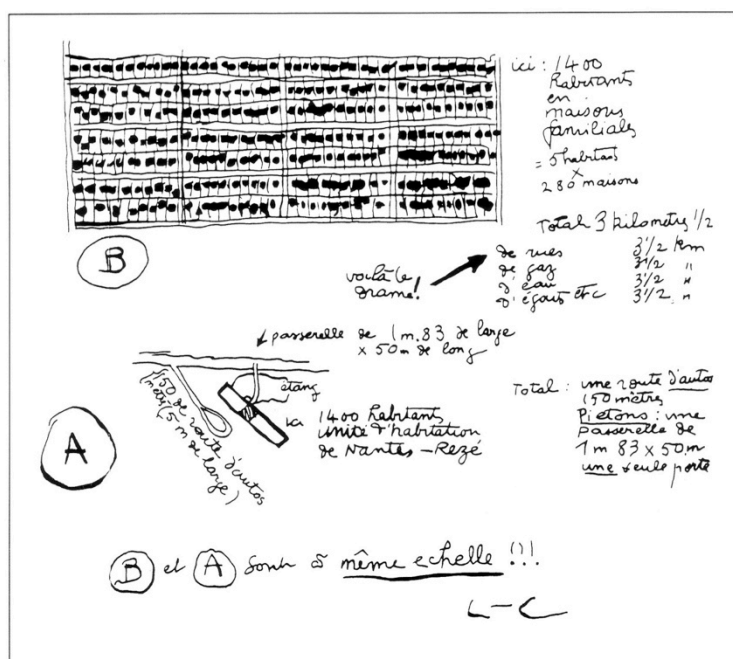 ici : 1400
habitants
en
maisons
familiales
= 5 habitants
×
280 maisons
Total 3 kilometres 1/2
de rues 3 1/2 km
de gaz 3 1/2 "
d'eau 3 1/2 "
d'égouts etc 3 1/2 "
B
voilà le
drame!
passerelle de 1m.83 de large
× 50m de long
étang
150 mètres de route d'autos
(5 m de large)
ici
1400 habitants
unité d'habitation
de Nantes-Rezé
A
Total : une route d'autos
150 mètres
Piétons : une
passerelle de
1m 83 × 50 m
une seule porte
B et A sont à même echelle !!!
L-C